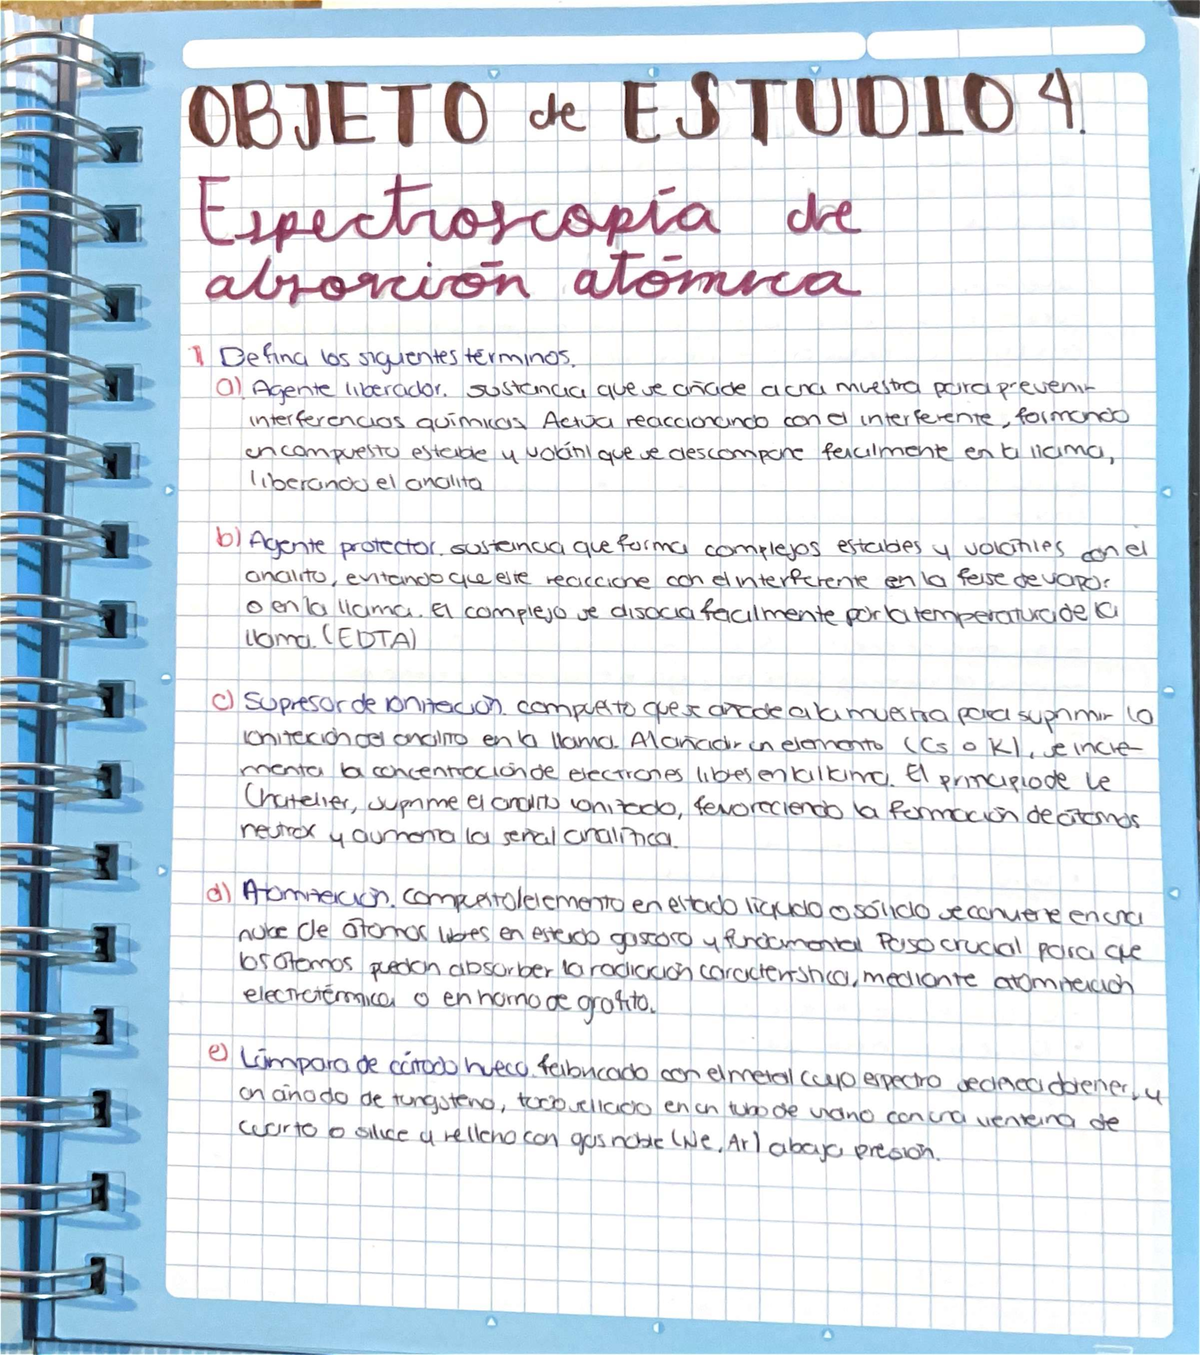 OBJETO de ESTUDIO 4.
Espectroscopía de
absorción atómica
1 Defina los siguientes términos.
a) Agente liberador. sustancia que se añade a una muestra para prevenir
interferencias químicas. Actúa reaccionando con el interferente, formando
un compuesto estable y volátil que se descompone fácilmente en la llama,
liberando el analita
b) Agente protector. sustancia que forma complejos estables y volátiles con el
analito, evitando que este reaccione con el interferente en la fase de vapor
o en la llama. El complejo se disocia fácilmente por la temperatura de la
llama. (EDTA)
c) Supresor de ionización. compuesto que se añade a la muestra para suprimir la
ionización del analito en la llama. Al añadir un elemento (Cs o K), se incre-
menta la concentración de electrones libres en la llama. El principio de Le
Chatelier, suprime el analito ionizado, favoreciendo la formación de átomos
neutros y aumenta la señal analítica.
d) Atomización. compuesto/elemento en estado líquido o sólido se convierte en una
nube de átomos libres en estado gaseoso y fundamental. Paso crucial para que
los átomos puedan absorber la radiación característica, mediante atomización
electrotérmica o en horno de grafito.
e) Lámpara de cátodo hueco. fabricado con el metal cuyo espectro se desea obtener, y
un ánodo de tungsteno, todo sellado en un tubo de vidrio con una ventana de
cuarzo o sílice y relleno con gas noble (Ne, Ar) a baja presión.